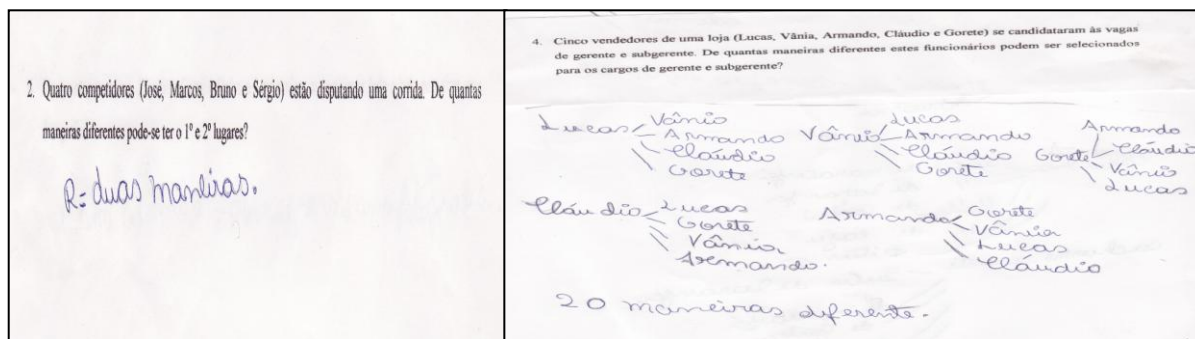 2. Quatro competidores (José, Marcos, Bruno e Sérgio) estão disputando uma corrida. De quantas
maneiras diferentes pode-se ter o 1º e 2º lugares?
R= duas maneiras.
4. Cinco vendedores de uma loja (Lucas, Vânia, Armando, Cláudio e Gorete) se candidataram às vagas
de gerente e subgerente. De quantas maneiras diferentes estes funcionários podem ser selecionados
para os cargos de gerente e subgerente?
Lucas
Vânia
Armando
Cláudio
Gorete
Vânia
Lucas
Armando
Cláudio
Gorete
Gorete
Armando
Cláudio
Vânia
Lucas
Cláudio
Lucas
Gorete
Vânia
Armando.
Armando
Gorete
Vânia
Lucas
Cláudio
20 maneiras diferente.